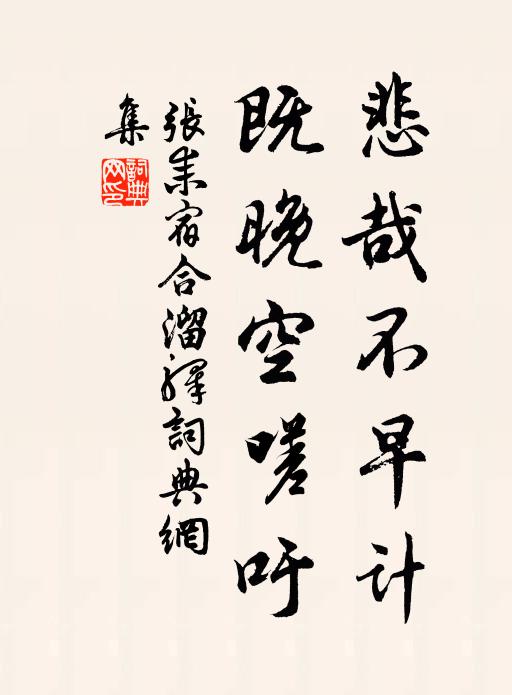 悲哉不早计
既晚空嗟吁
張耒宿合溜驛詞典網
集
詞典
网印